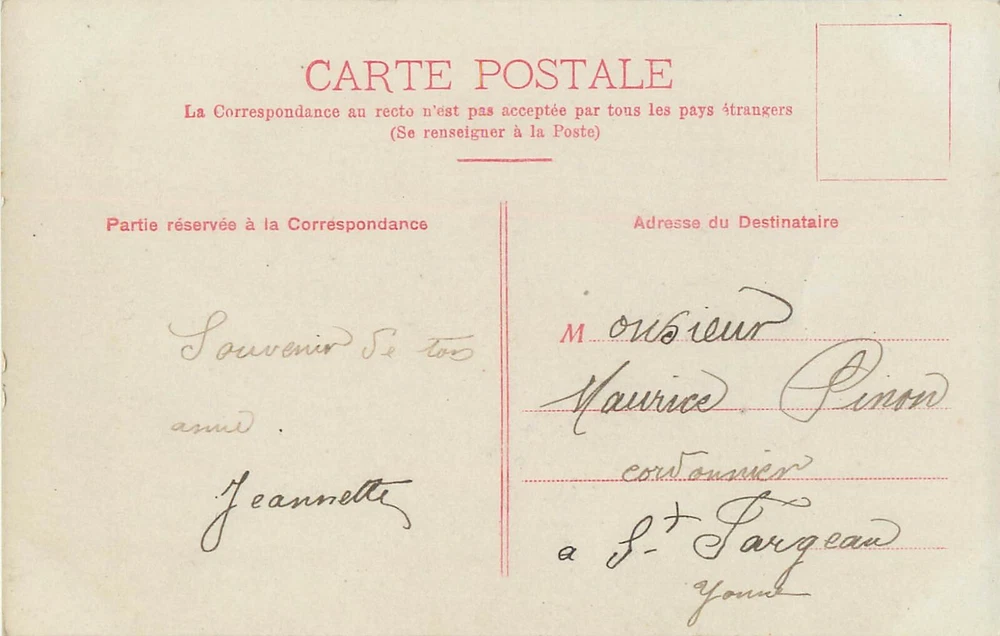 CARTE POSTALE
La Correspondance au recto n'est pas acceptée par tous les pays étrangers
(Se renseigner à la Poste)
Partie réservée à la Correspondance
Souvenir de ton
amie.
Jeannette
Adresse du Destinataire
Monsieur
Maurice Pinon
cordonnier
a St Fargeau
Yonne